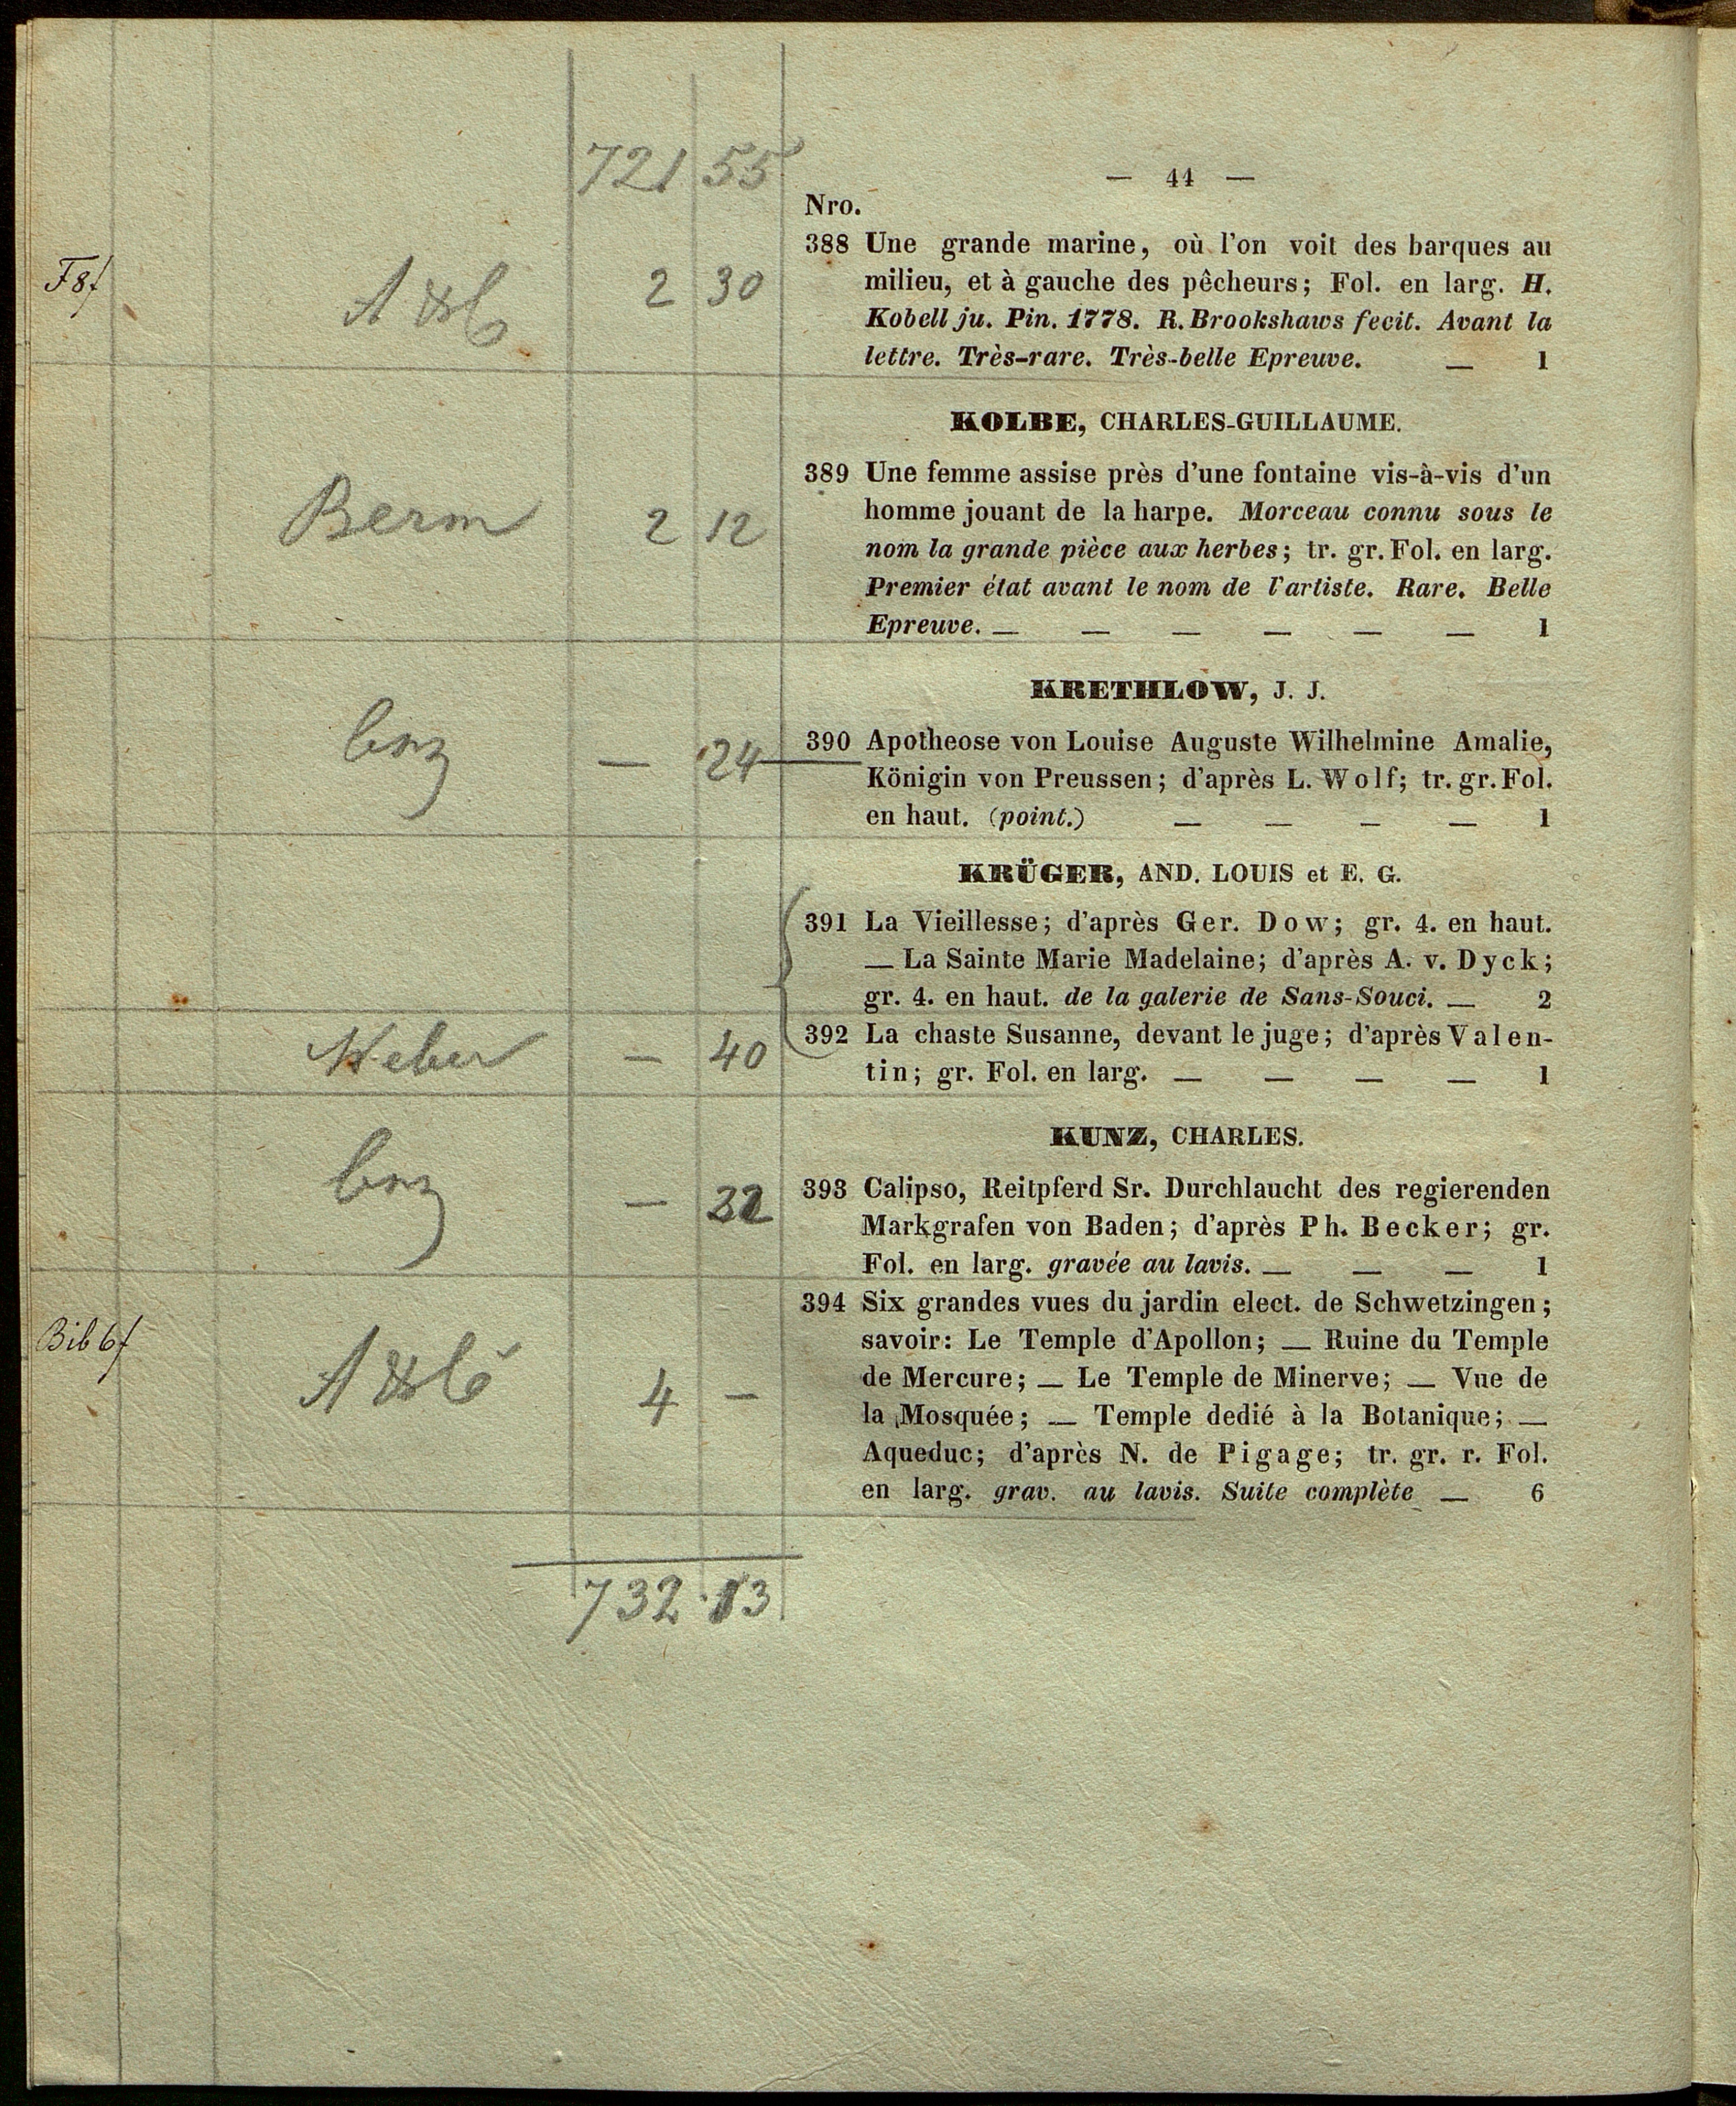 721 55
— 44 —
Nro.
F 8f
2 30
388 Une grande marine, où l'on voit des barques au
milieu, et à gauche des pêcheurs; Fol. en larg. H.
Kobell ju. Pin. 1778. R. Brookshaws fecit. Avant la
lettre. Très-rare. Très-belle Epreuve. — 1
KOLBE, CHARLES-GUILLAUME.
Berm 2 12
389 Une femme assise près d'une fontaine vis-à-vis d'un
homme jouant de la harpe. Morceau connu sous le
nom la grande pièce aux herbes; tr. gr. Fol. en larg.
Premier état avant le nom de l'artiste. Rare. Belle
Epreuve. — — — — — — 1
KRETHLOW, J. J.
— 24
390 Apotheose von Louise Auguste Wilhelmine Amalie,
Königin von Preussen; d'après L. Wolf; tr. gr. Fol.
en haut. (point.) — — — — 1
KRÜGER, AND. LOUIS et E. G.
391 La Vieillesse; d'après Ger. Dow; gr. 4. en haut.
— La Sainte Marie Madelaine; d'après A. v. Dyck;
gr. 4. en haut. de la galerie de Sans-Souci. — 2
Weber — 40
392 La chaste Susanne, devant le juge; d'après Valen-
tin; gr. Fol. en larg. — — — — 1
KUNZ, CHARLES.
— 32
393 Calipso, Reitpferd Sr. Durchlaucht des regierenden
Markgrafen von Baden; d'après Ph. Becker; gr.
Fol. en larg. gravée au lavis. — — — 1
Bib 6f
4 —
394 Six grandes vues du jardin elect. de Schwetzingen;
savoir: Le Temple d'Apollon; — Ruine du Temple
de Mercure; — Le Temple de Minerve; — Vue de
la Mosquée; — Temple dedié à la Botanique; —
Aqueduc; d'après N. de Pigage; tr. gr. r. Fol.
en larg. grav. au lavis. Suite complète — 6
732 . 13